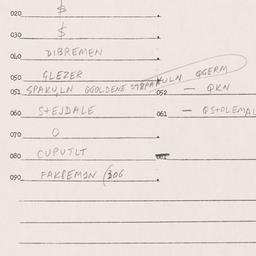 020 $
030 $
040 DIBREMEN
050 GLEZER
051 SPAKULN GGOLDENE STEPAKULN QGERM
052 — QKN
060 STEJDALE 061 — QSTOLEMAL
070 0
080 CUPUTLT 081
090 FAKREMEN 306